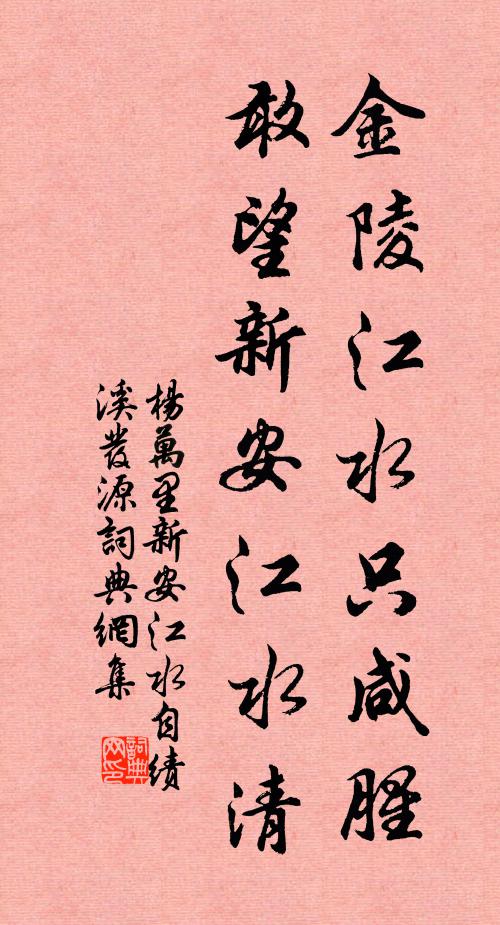 金陵江水只咸腥
敢望新安江水清
楊萬里新安江水自績
溪發源詞典網集
詞典
网印